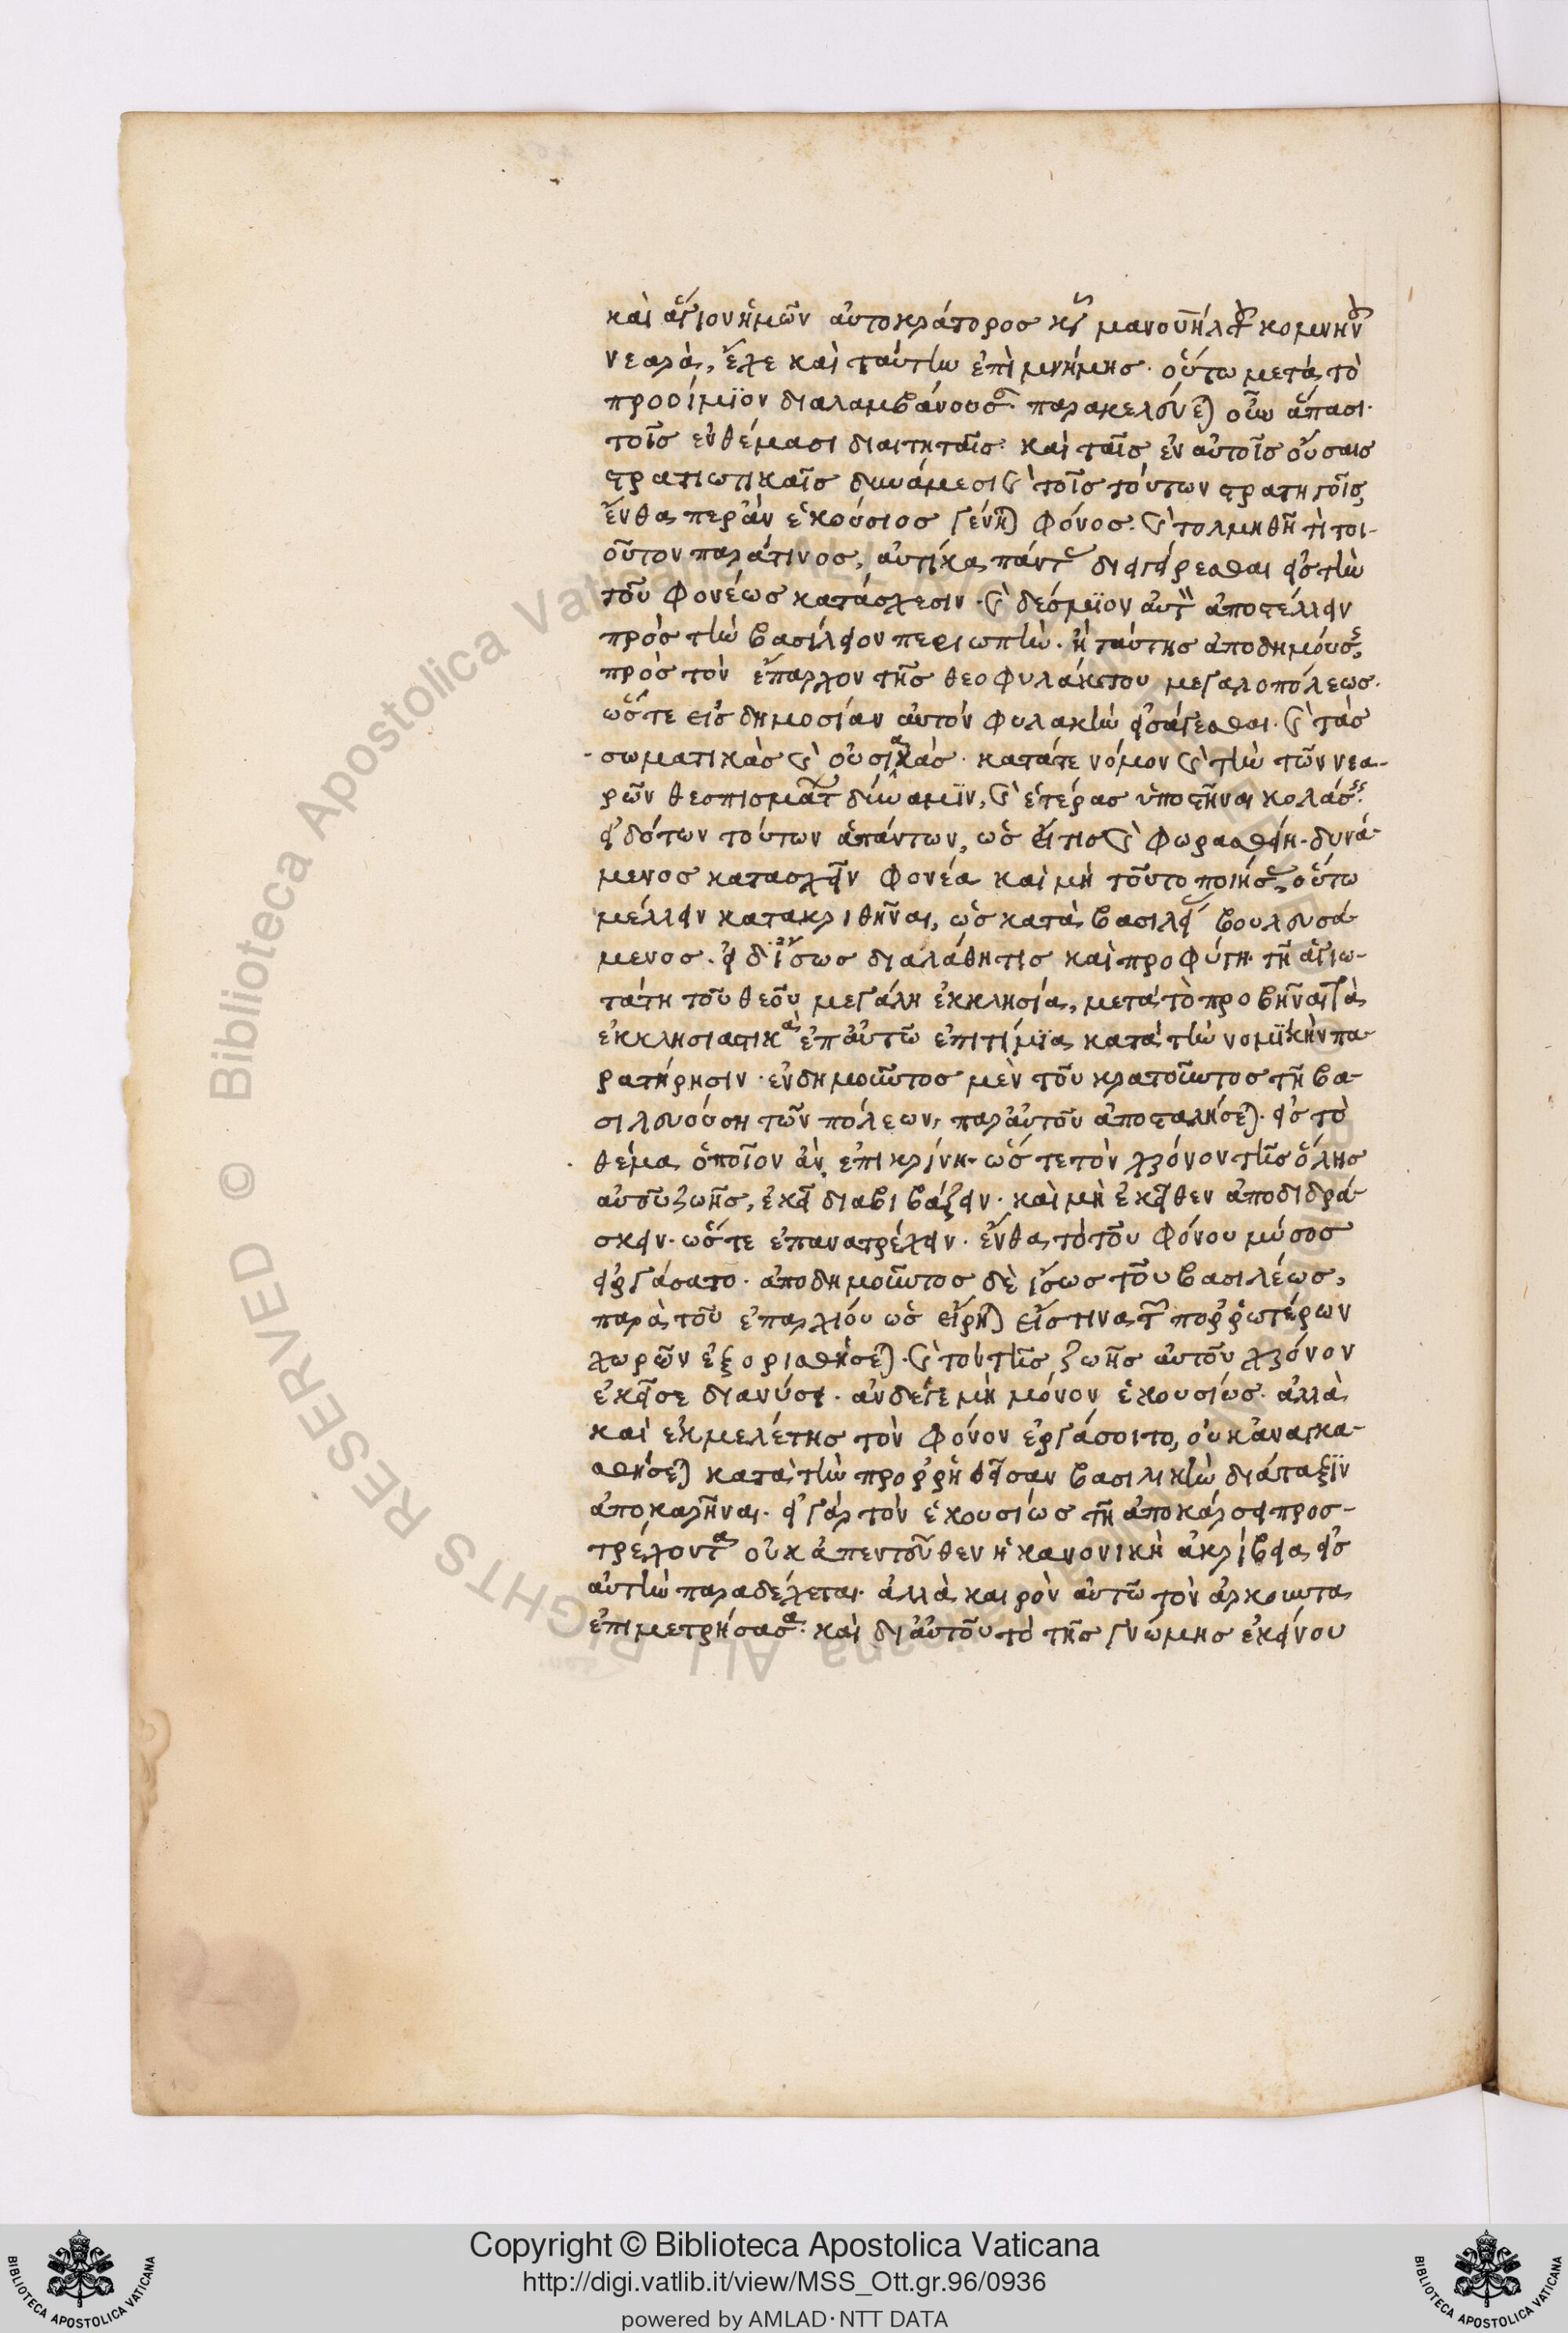 καὶ ἁγίου ἡμῶν αὐτοκράτορος κυ μανουὴλ τοῦ κομνηνοῦ
νεαρὰ, ἔχε καὶ ταύτην ἐπὶ μνήμης. οὕτω μετὰ τὸ
προοίμιον διαλαμβάνουσα. παρακελεύεται οὖν ἅπασι.
τοῖς ἐν θέμασι διαιτηταῖς. καὶ ταῖς ἐν αὐτοῖς οὔσαις
στρατιωτικαῖς δυνάμεσι καὶ τοῖς τούτων στρατηγοῖς,
ἔνθαπερ ἂν ἑκούσιος γένηται φόνος. καὶ τολμηθῆ τι τοι-
οῦτον παρά τινος, αὐτίκα πάντας διεγείρεσθαι εἰς τὴν
τοῦ φονέως κατάσχεσιν. καὶ δέσμιον αὐτὸν ἀποστέλλειν
πρὸς τὴν βασίλειον περιωπὴν. ἢ ταύτης ἀποδημούσης,
πρὸς τὸν ἔπαρχον τῆς θεοφυλάκτου μεγαλοπόλεως.
ὥστε εἰς δημοσίαν αὐτὸν φυλακὴν εἰσάγεσθαι. καὶ τὰς
σωματικὰς καὶ οὐσιακάς. κατά τε νόμον καὶ τὴν τῶν νεα-
ρῶν θεσπισμάτων δύναμιν, καὶ ἑτέρας ὑποστῆναι κολάσεις.
εἰδότων τούτων ἁπάντων, ὡς εἴ τις καὶ φωραθείη. δυνά-
μενος κατασχεῖν φονέα καὶ μὴ τοῦτο ποιήσας, οὕτω
μέλλειν κατακριθῆναι, ὡς κατὰ βασιλέως βουλευσά-
μενος. εἰ δ' ἴσως διαλάθη τις καὶ προφύγη. τῆ ἁγιω-
τάτη τοῦ θεοῦ μεγάλη ἐκκλησία, μετὰ τὸ προβῆναι τὰ
ἐκκλησιαστικὰ ἐπ' αὐτῶ ἐπιτίμια κατὰ τὴν νομικὴν πα-
ρατήρησιν. ἐνδημοῦντος μὲν τοῦ κρατοῦντος τῆ βα-
σιλευούση τῶν πόλεων, παρ' αὐτοῦ ἀποσταλήσεται. εἰς τὸ
θέμα ὁποῖον ἂν ἐπικρίνη. ὥστε τὸν χρόνον τῆς ὅλης
αὐτοῦ ζωῆς, ἐκεῖ διαβιβάζειν. καὶ μὴ ἐκεῖθεν ἀποδιδρά-
σκειν. ὥστε ἐπανατρέχειν. ἔνθα τὸ τοῦ φόνου μύσος
εἰργάσατο. ἀποδημοῦντος δὲ ἴσως τοῦ βασιλέως,
παρὰ τοῦ ἐπάρχου ὡς εἴρηται εἴς τινα τῶν πορρωτέρων
χωρῶν ἐξορισθήσεται. καὶ τὸν τῆς ζωῆς αὐτοῦ χρόνον
ἐκεῖσε διανύσει. ἂν δέ γε μὴ μόνον ἑκουσίως. ἀλλὰ
καὶ ἐκ μελέτης τὸν φόνον ἐργάσοιτο, οὐκ ἀναγκα-
σθήσεται κατὰ τὴν προρρηθεῖσαν βασιλικὴν διάταξιν
ἀποκαρῆναι. εἰ γὰρ τὸν ἑκουσίως τῆ ἀποκάρσει προσ-
τρέχοντα οὐκ ἀπεντεῦθεν ἡ κανονικὴ ἀκρίβεια εἰς
αὐτὴν παραδέχεται. ἀλλὰ καιρὸν αὐτῶ τὸν ἀρκοῦντα
ἐπιμετρήσασα. καὶ δι' αὐτοῦ τὸ τῆς γνώμης ἐκείνου
Copyright © Biblioteca Apostolica Vaticana
http://digi.vatlib.it/view/MSS_Ott.gr.96/0936
powered by AMLAD·NTT DATA
BIBLIOTECA APOSTOLICA VATICANA
BIBLIOTECA APOSTOLICA VATICANA